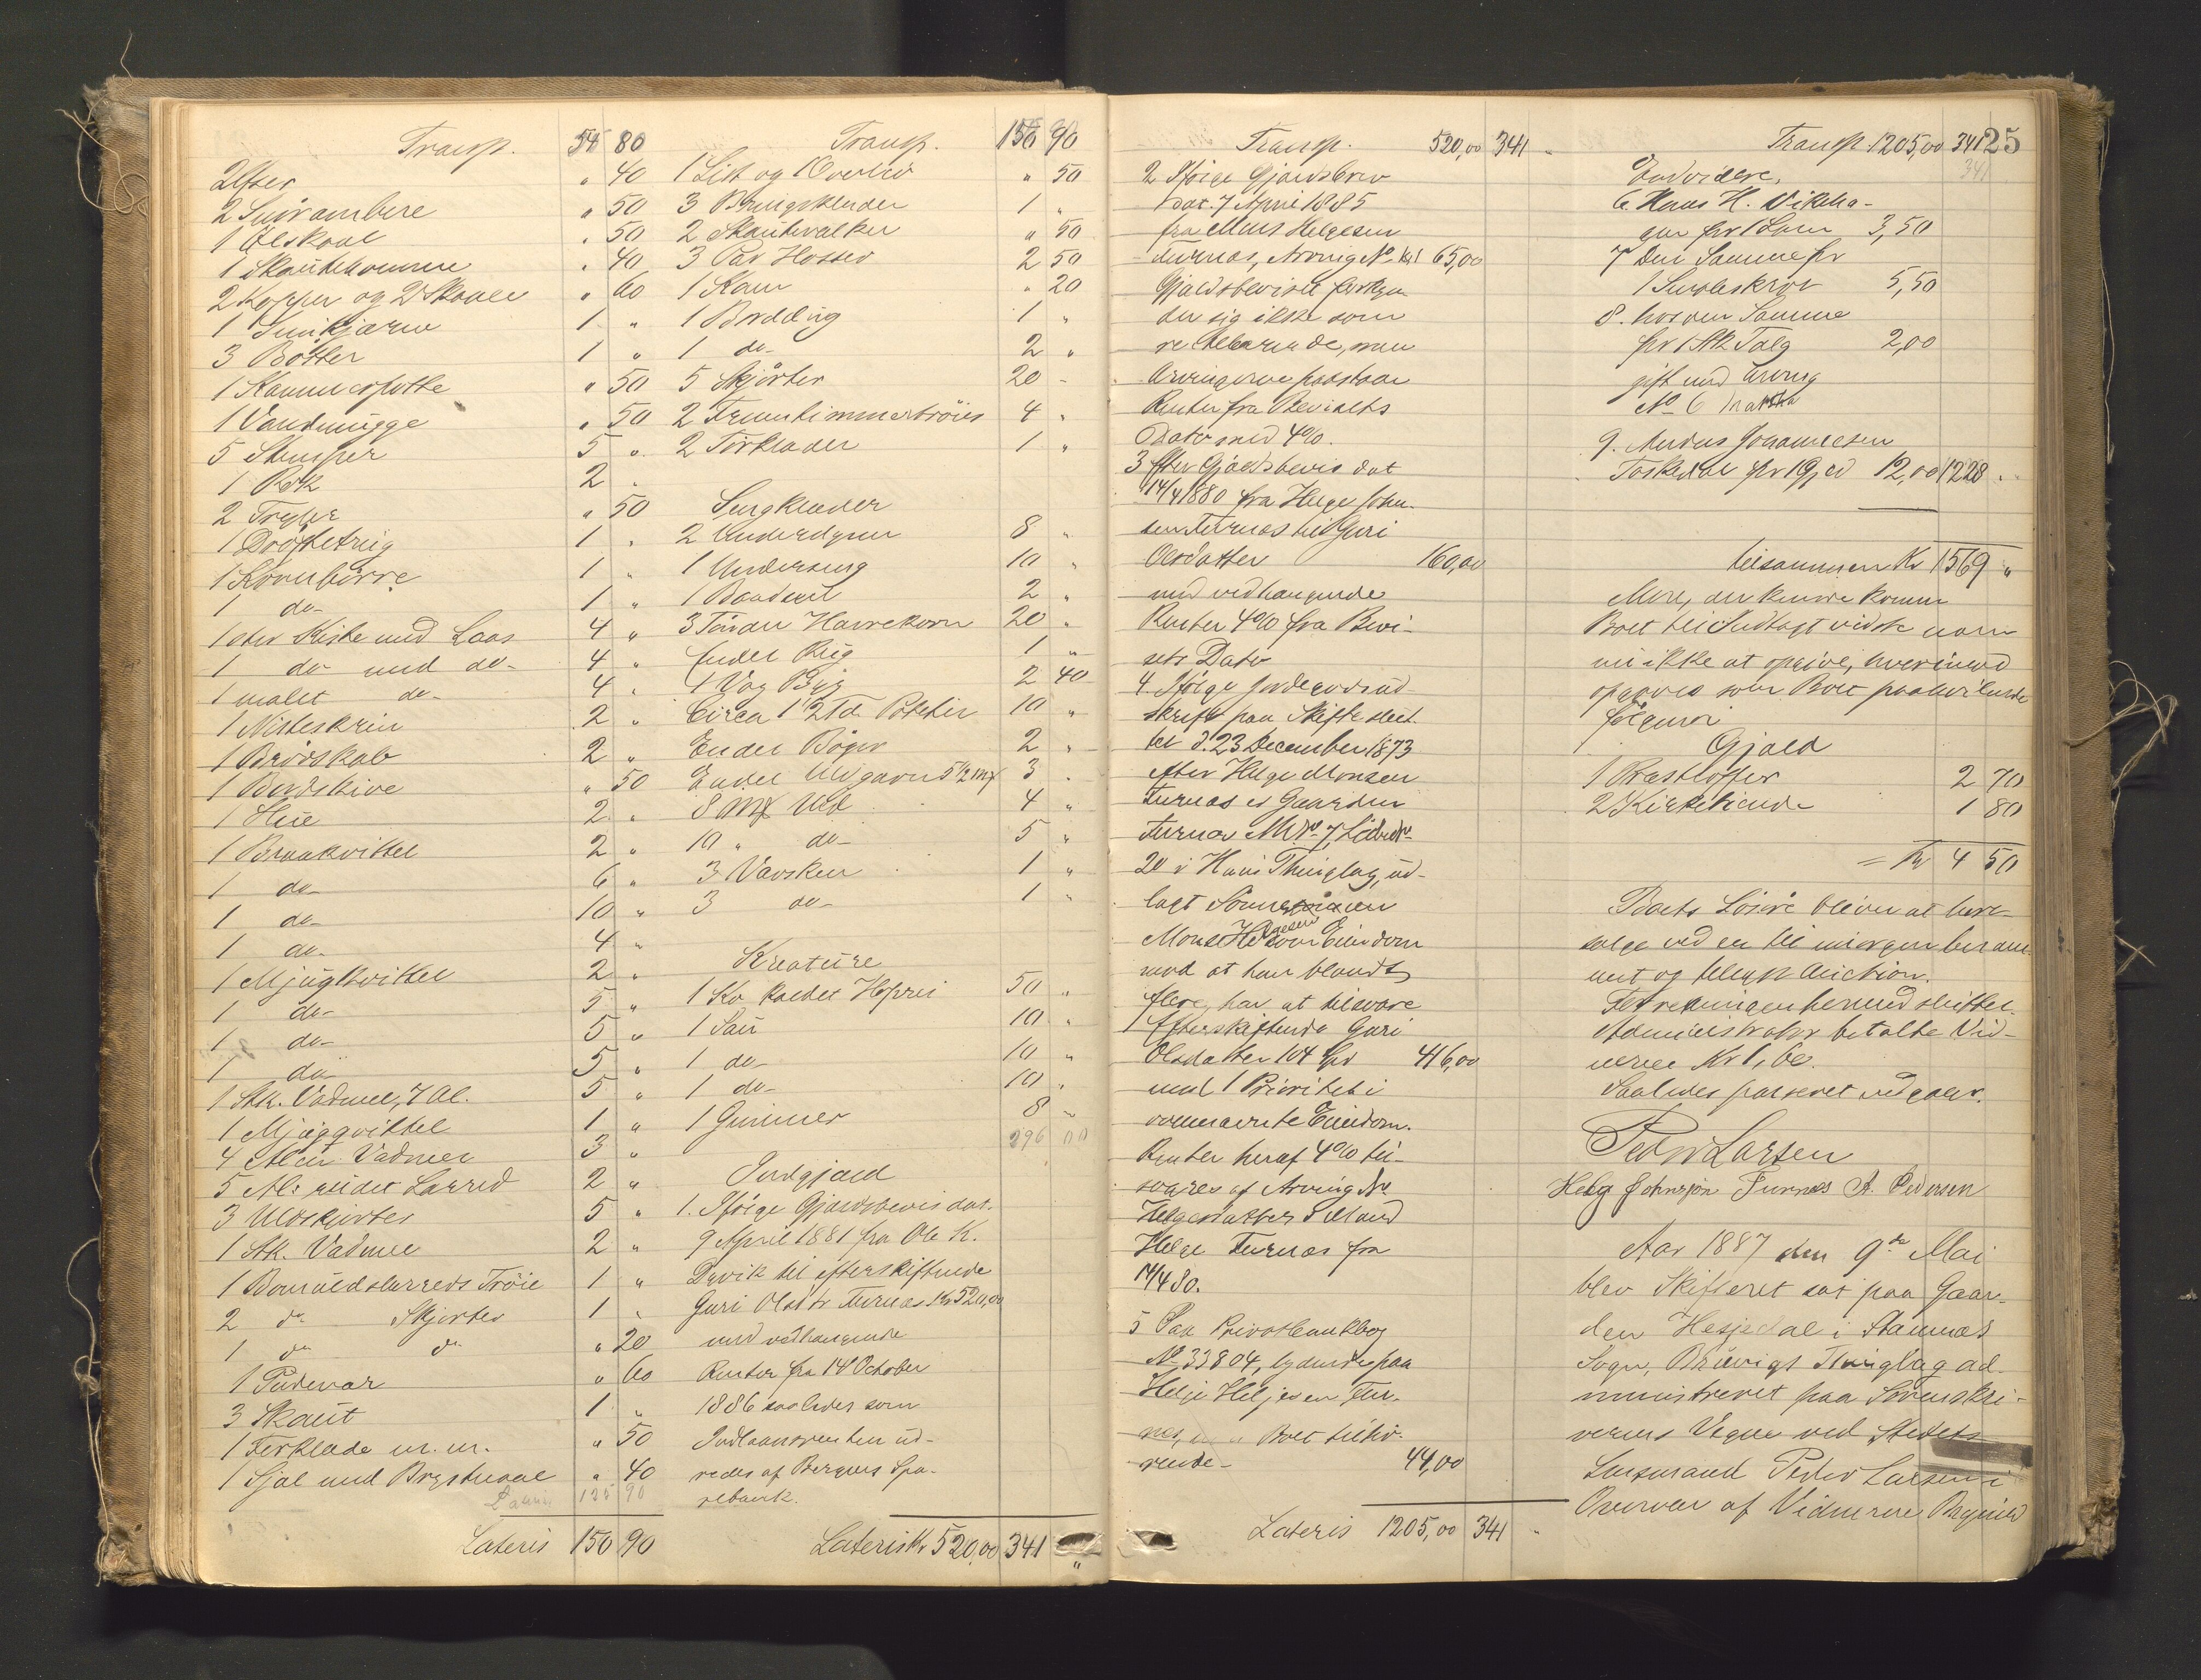 Transp. 54 80
2 Æsker " 40
2 Smørambere " 50
1 Ølskaal " 50
" 40
2 Kopper og 2 Skaaler " 60
1 Smikjærne 1 "
3 Bøtter 1 "
1 Kammerpotte " 50
1 Vandmugge " 50
5 Strumper 5 "
1 Rok 2 "
2 Tryer " 50
1 Drøftetrug 1 "
1 Kornbørre 1 "
1 do- 1 "
1 Kiste med Laas 4 "
1 do med do- 4 "
1 malet do- 4 "
1 Nisteskrin 2 "
1 Brødskab 2 "
1 Bordskive " 50
1 Hue 2 "
1 Braakvittel 2 "
1 do- 6 "
1 do- 10 "
1 do- 4 "
1 Mjugkvittel 2 "
1 do- 5 "
1 do- 5 "
1 do- 5 "
1 Stk. Vadmel, 7 Al. 5 "
1 Mjøgqvittel 1 "
4 Alen Vadmel 3 "
5 Al. Lærred 2 "
3 Uldskjorter 5 "
1 Stk. Vadmel 2 "
1 Bomuldslærreds Trøie 1 "
2 do Skjorter 1 "
1 do do " 20
1 Pudevar " 60
3 Skaut 1 "
1 Forklæde m. m. " 50
1 Sjal med Brystnaal " 40
125 90
Lateris 150 90
Transp. 150 90
1 List og 1 Overliv " 50
3 Bringeklæder 1 "
2 Skautevalker " 50
3 Par Hoser 2 50
1 Kam " 20
1 Borddug 1 "
1 do- 2 "
5 Skjørter 20 -
2 Fruentimmertrøier 4 "
2 Tørklæder 1 "
Sengklæder
2 Underdyner 8 "
1 Underseng 10 "
2 "
3 Tønder Havrekorn 20 "
Endel Rug 1 "
1 Vog Byg 2 40
Circa 1½ Td. Poteter 10 "
Endel Bøger 2 "
Endel Uldgarn 5½ Mk 3 "
8 Mk Uld 4 "
10 " do- 5 "
3 Vævsken 1 "
3 do- 1 "
Kreature
1 Ko kaldet 50 "
1 Sau 10 "
1 do- 10 "
1 do- 10 "
1 Gimmer 8 "
296 00
Indgjæld
1. Ifølge Gjældsbevis dat.
9 April 1881 fra Ole K.
Dyvik til efterskiftende
Guri Olsdtr Furnæs Kr 520,00
med vedhængende
Renter fra 14 October
1886 saaledes som
Indlaansrenten ud-
redes af Bergens Spa-
rebank.
Lateris Kr 520,00 341 "
Transp. 520,00 341 "
2 Ifølge Gjældsbrev
dat. 7 April 1885
fra Mons Helgesen
Furnæs, Arving No. 1 65,00
Gjældsbeviset
der sig ikke som
men
Arvingerne paastaar
Renter fra Bevisets
Dato med 4%.
3 Efter Gjældsbevis dat
14/4 1880 fra Helge John-
sen Furnæs til Guri
Olsdatter 160,00
med vedhængende
Renter 4% fra Bevi-
sets Dato
4 Ifølge
skrift paa Skifte sluttet
d. 23 December 1873
efter Helge Monsen
Furnæs er Gaarden
Furnæs M No. 7, Løbe No.
20 i Haus Thinglag, ud-
lagt Sønnen
Mons Helgesen Eiendom
mod at han blandt
flere, har at tilsvare
Efterskiftende Guri
Olsdatter 104 Spd 416,00
med 1 Prioritet i
vornævnte Eiendom.
Renter heraf 4% til-
svares af Arving No
Helgesdatter
Helge Furnæs fra
14/4 80.
5 Paa Privatbankbog
No 33804, lydende paa
Helje Heljesen Fur-
næs, Boet tilhø-
rende- 44,00
Lateris 1205,00 341 "
Transp. 1205,00 341 25
341
Endvidere.
6. Hans H. Vikhau-
gen for 1 Lam 3,50
7 Den Samme for
5,50
8. hos den Samme
for 1 Stk Talg 2,00
gift med Arving
No 6 Martha
9. Anders Johannesen
Toskedal for 1 Gjed 12,00 1228 "
tilsammen Kr 1569 "
Mere, der kunde komme
Boet til Indtægt vidste man
nu ikke at opgive, hvorimod
opgaves som Boet paahvilende
følgende
Gjæld
1 Præstoffer 2 70
2 Kirketiende 1 80
= Kr 4 50
Boets Løsøre bliver at bort-
sælge ved en til imorgen beram-
met og Auction.
Forretningen hermed sluttet.
Administrator betalte Vid-
nerne Kr 1,60.
Saaledes passeret vedgaaes.
Peder Larsen
Helg Johnsøn Furnæs A. Pedersen
Aar 1887 den 9de Mai
blev Skifteret sat paa Gaar-
den Hesjedal i Stamnæs
Sogn, Bruviks Thinglag ad-
ministreret paa Sorenskri-
verens Vegne ved Stedets
Lensmand Peder Larsen i
Overvær af Vidnerne Brynild